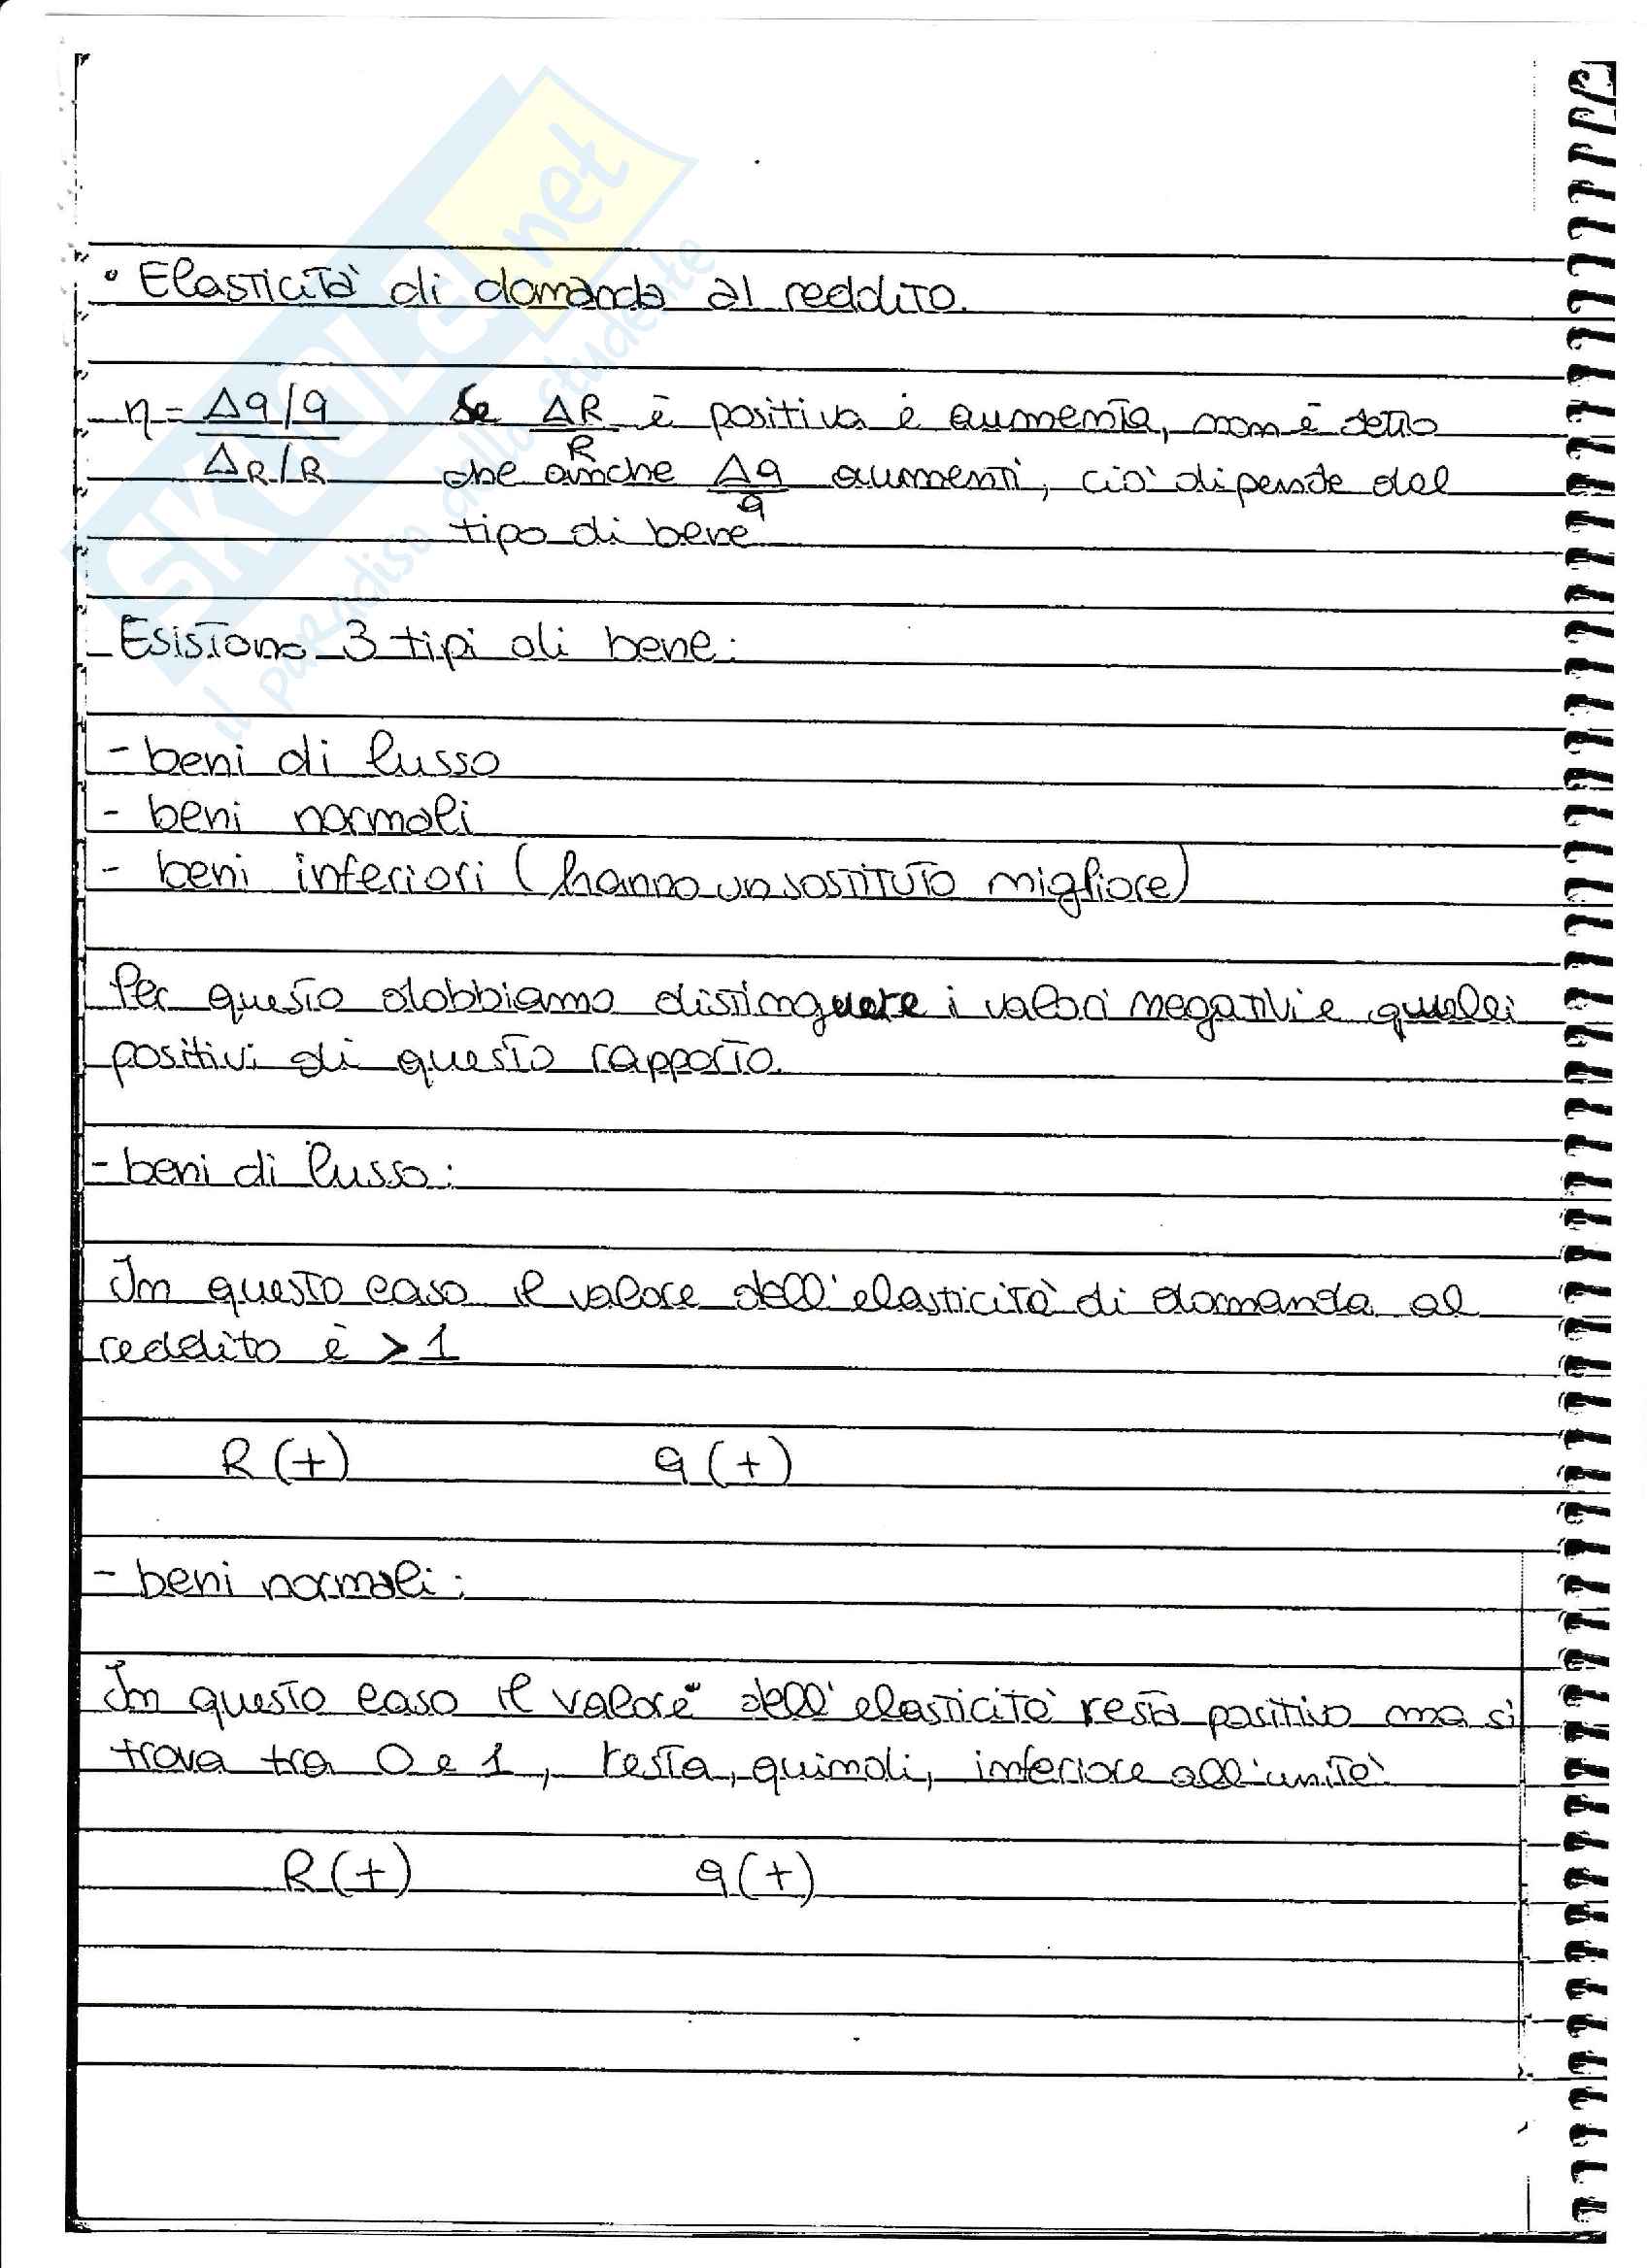 SKUOLA.net
il paradiso dello studente
• Elasticità di domanda al reddito.
η = Δq/q Se ΔR è positiva e aumenta, non è detto
ΔR/R R che anche Δq aumenti, ciò dipende dal
q
tipo di bene
Esistono 3 tipi di bene:
- beni di lusso
- beni normali
- beni inferiori (hanno un sostituto migliore)
Per questo dobbiamo distinguere i valori negativi e quelli
positivi di questo rapporto.
- beni di lusso:
In questo caso il valore dell'elasticità di domanda al
reddito è > 1
R (+) q (+)
- beni normali:
In questo caso il valore dell'elasticità resta positivo ma si
trova tra 0 e 1, resta, quindi, inferiore all'unità
R (+) q (+)